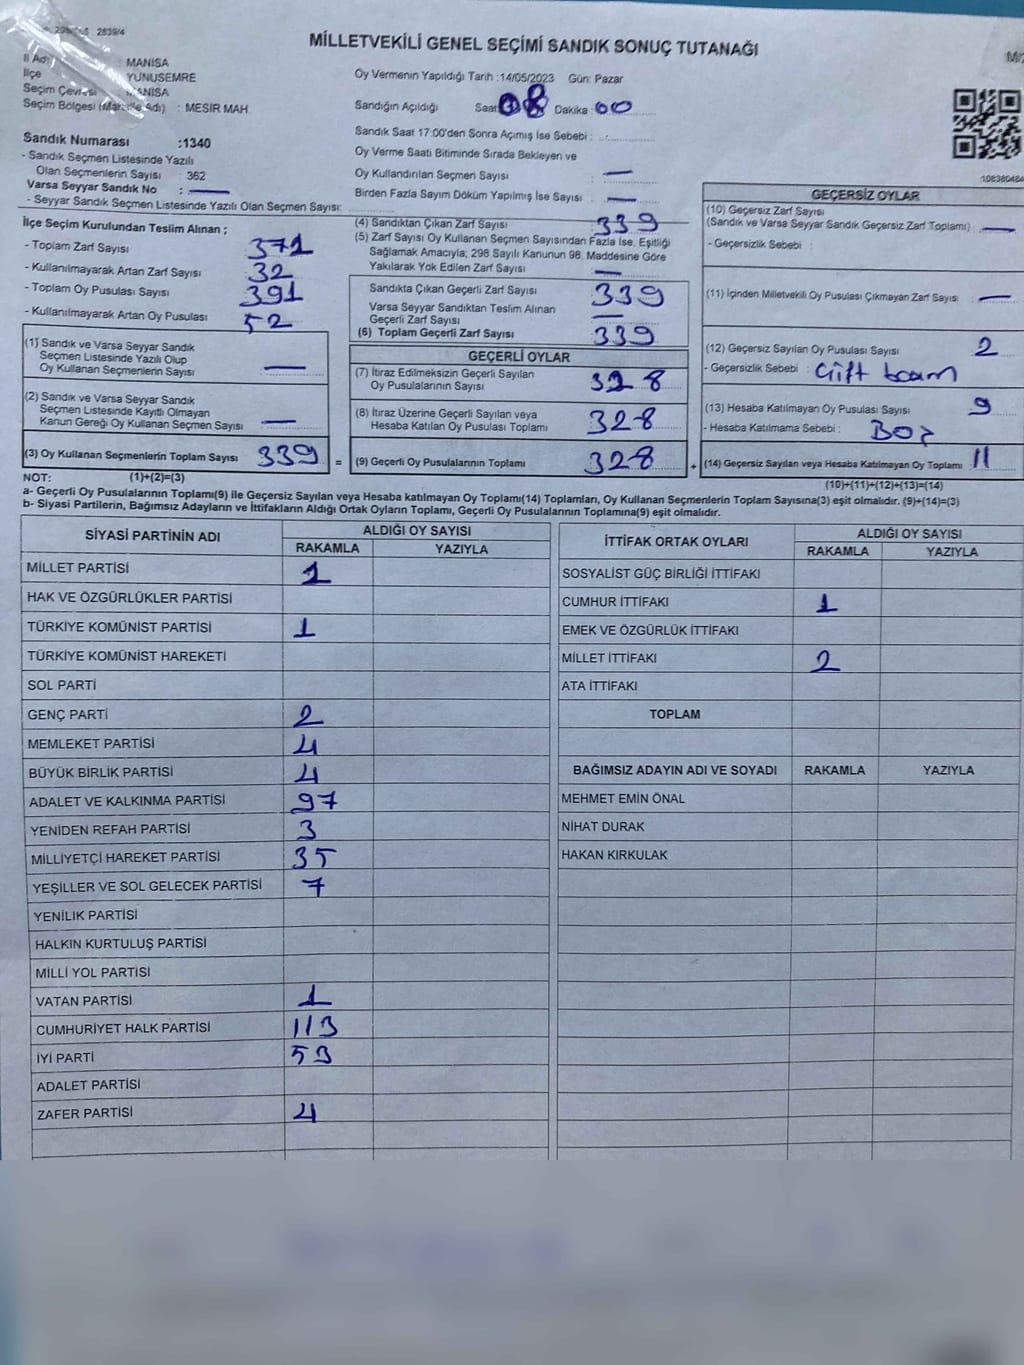 2839/4
MİLLETVEKİLİ GENEL SEÇİMİ SANDIK SONUÇ TUTANAĞI
İl Adı : MANİSA
İlçe : YUNUSEMRE
Seçim Çevresi : MANİSA
Seçim Bölgesi (Mahalle Adı) : MESİR MAH
Sandık Numarası :1340
- Sandık Seçmen Listesinde Yazılı
Olan Seçmenlerin Sayısı : 362
Varsa Seyyar Sandık No : —
- Seyyar Sandık Seçmen Listesinde Yazılı Olan Seçmen Sayısı:
Oy Vermenin Yapıldığı Tarih :14/05/2023 Gün: Pazar
Sandığın Açıldığı Saat 08 Dakika : 00
Sandık Saat 17:00'den Sonra Açımış İse Sebebi :
Oy Verme Saati Bitiminde Sırada Bekleyen ve
Oy Kullandırılan Seçmen Sayısı : —
Birden Fazla Sayım Döküm Yapılmış İse Sayısı : —
İlçe Seçim Kurulundan Teslim Alınan ;
- Toplam Zarf Sayısı 371
- Kullanılmayarak Artan Zarf Sayısı 32
- Toplam Oy Pusulası Sayısı 391
- Kullanılmayarak Artan Oy Pusulası 52
(1) Sandık ve Varsa Seyyar Sandık
Seçmen Listesinde Yazılı Olup
Oy Kullanan Seçmenlerin Sayısı —
(2) Sandık ve Varsa Seyyar Sandık
Seçmen Listesinde Kayıtlı Olmayan
Kanun Gereği Oy Kullanan Seçmen Sayısı —
(3) Oy Kullanan Seçmenlerin Toplam Sayısı 339 =
NOT: (1)+(2)=(3)
(4) Sandıktan Çıkan Zarf Sayısı : 339
(5) Zarf Sayısı Oy Kullanan Seçmen Sayısından Fazla İse, Eşitliği
Sağlamak Amacıyla; 298 Sayılı Kanunun 98. Maddesine Göre
Yakılarak Yok Edilen Zarf Sayısı —
Sandıkta Çıkan Geçerli Zarf Sayısı 339
Varsa Seyyar Sandıktan Teslim Alınan
Geçerli Zarf Sayısı —
(6) Toplam Geçerli Zarf Sayısı 339
GEÇERLİ OYLAR
(7) İtiraz Edilmeksizin Geçerli Sayılan
Oy Pusulalarının Sayısı 328
(8) İtiraz Üzerine Geçerli Sayılan veya
Hesaba Katılan Oy Pusulası Toplamı 328
(9) Geçerli Oy Pusulalarının Toplamı 328 +
GEÇERSİZ OYLAR
(10) Geçersiz Zarf Sayısı
(Sandık ve Varsa Seyyar Sandık Geçersiz Zarf Toplamı) —
- Geçersizlik Sebebi :
(11) İçinden Milletvekili Oy Pusulası Çıkmayan Zarf Sayısı —
(12) Geçersiz Sayılan Oy Pusulası Sayısı 2
- Geçersizlik Sebebi :
(13) Hesaba Katılmayan Oy Pusulası Sayısı 9
- Hesaba Katılmama Sebebi : BOŞ
(14) Geçersiz Sayılan veya Hesaba Katılmayan Oy Toplamı 11
(10)+(11)+(12)+(13)=(14)
a- Geçerli Oy Pusulalarının Toplamı(9) ile Geçersiz Sayılan veya Hesaba katılmayan Oy Toplamı(14) Toplamları, Oy Kullanan Seçmenlerin Toplam Sayısına(3) eşit olmalıdır. (9)+(14)=(3)
b- Siyasi Partilerin, Bağımsız Adayların ve İttifakların Aldığı Ortak Oyların Toplamı, Geçerli Oy Pusulalarının Toplamına(9) eşit olmalıdır.
SİYASİ PARTİNİN ADI ALDIĞI OY SAYISI
RAKAMLA YAZIYLA
MİLLET PARTİSİ 1
HAK VE ÖZGÜRLÜKLER PARTİSİ
TÜRKİYE KOMÜNİST PARTİSİ 1
TÜRKİYE KOMÜNİST HAREKETİ
SOL PARTİ
GENÇ PARTİ 2
MEMLEKET PARTİSİ 4
BÜYÜK BİRLİK PARTİSİ 4
ADALET VE KALKINMA PARTİSİ 97
YENİDEN REFAH PARTİSİ 3
MİLLİYETÇİ HAREKET PARTİSİ 35
YEŞİLLER VE SOL GELECEK PARTİSİ 7
YENİLİK PARTİSİ
HALKIN KURTULUŞ PARTİSİ
MİLLİ YOL PARTİSİ
VATAN PARTİSİ 1
CUMHURİYET HALK PARTİSİ 113
İYİ PARTİ 53
ADALET PARTİSİ
ZAFER PARTİSİ 4
İTTİFAK ORTAK OYLARI ALDIĞI OY SAYISI
RAKAMLA YAZIYLA
SOSYALİST GÜÇ BİRLİĞİ İTTİFAKI
CUMHUR İTTİFAKI 1
EMEK VE ÖZGÜRLÜK İTTİFAKI
MİLLET İTTİFAKI 2
ATA İTTİFAKI
TOPLAM
BAĞIMSIZ ADAYIN ADI VE SOYADI RAKAMLA YAZIYLA
MEHMET EMİN ÖNAL
NİHAT DURAK
HAKAN KIRKULAK